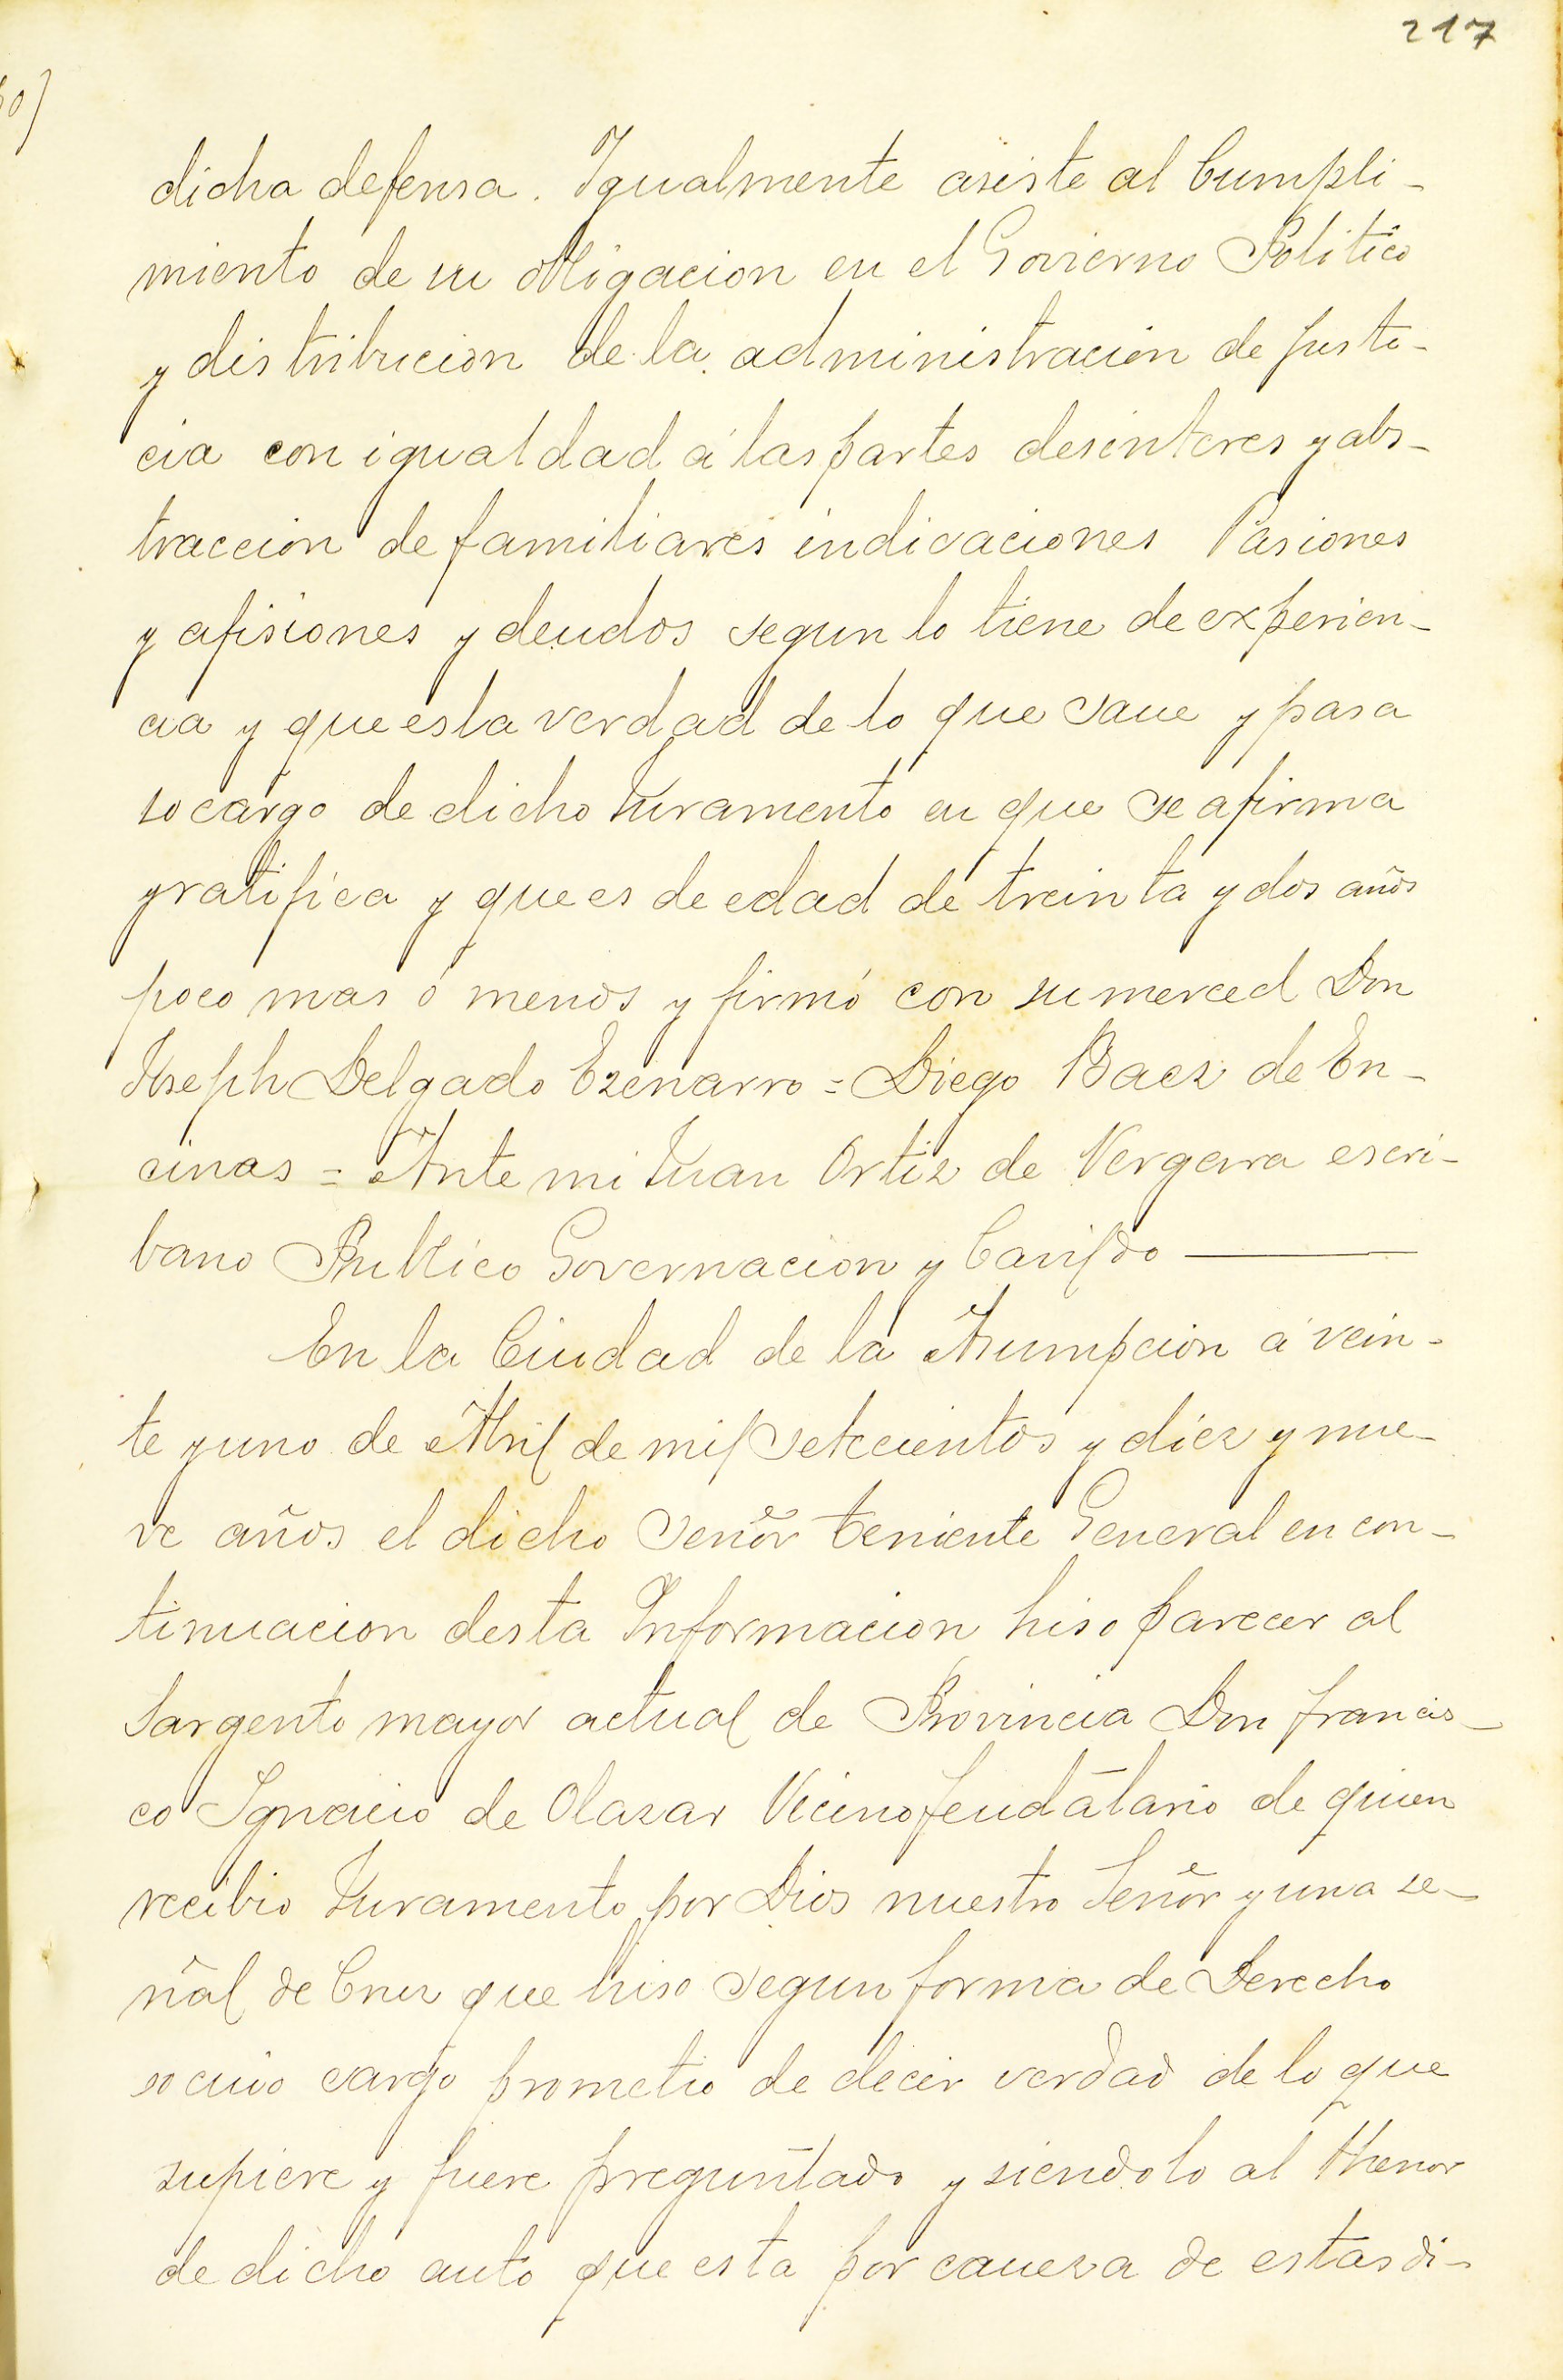 217
dicha defensa. Igualmente asiste al Cumpli-
miento de su obligacion en el Govierno Politico
y distribucion de la administracion de justi-
cia con igualdad á las partes desinteres y abs-
traccion de familiares indicaciones Pasiones
y afisiones y deudos segun lo tiene de experien-
cia y que es la verdad de lo que save y pasa
so cargo de dicho Juramento en que se afirma
y ratifica y que es de edad de treinta y dos años
poco mas ó menos y firmó con su merced Don
Joseph Delgado Ezenarro = Diego Baez de En-
cinas = Ante mi Juan Ortiz de Vergara escri-
bano Publico Governacion y Cavildo
En la Ciudad de la Asumpcion á vein-
te y uno de Abril de mil setecientos y diez y nue-
ve años el dicho Señor teniente General en con-
tinuacion desta Informacion hiso parecer al
Sargento mayor actual de Provincia Don francis-
co Ignacio de Olazar Vicino feudatario de quien
recibio Juramento por Dios nuestro Señor y una se-
ñal de Cruz que hiso segun forma de Derecho
so cuio cargo prometio de decir verdad de lo que
supiere y fuere preguntado y siendolo al thenor
de dicho auto que esta por caueza de estas di-